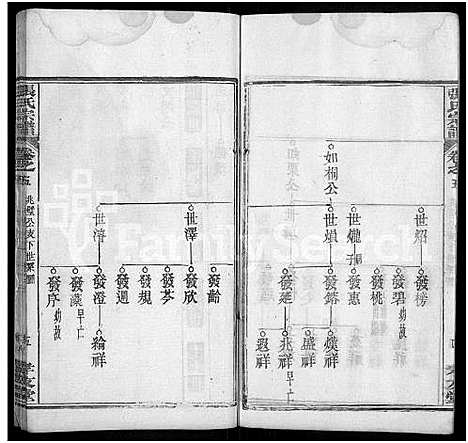 張氏宗譜
卷之五
如桐公
世炤
世爖
世熉
發楞
發碧 幼故
發桃
發惠
發鎔
發延
熯祥
盛祥
兆祥 早亡
遐祥
世澤
世濬
發齡
發欣
發芩
發規
發週
發澄
發藻 早亡
發序 幼故
綸祥
張氏宗譜
卷之五
兆璧公支下世系圖
五
孝友堂
FamilySearch